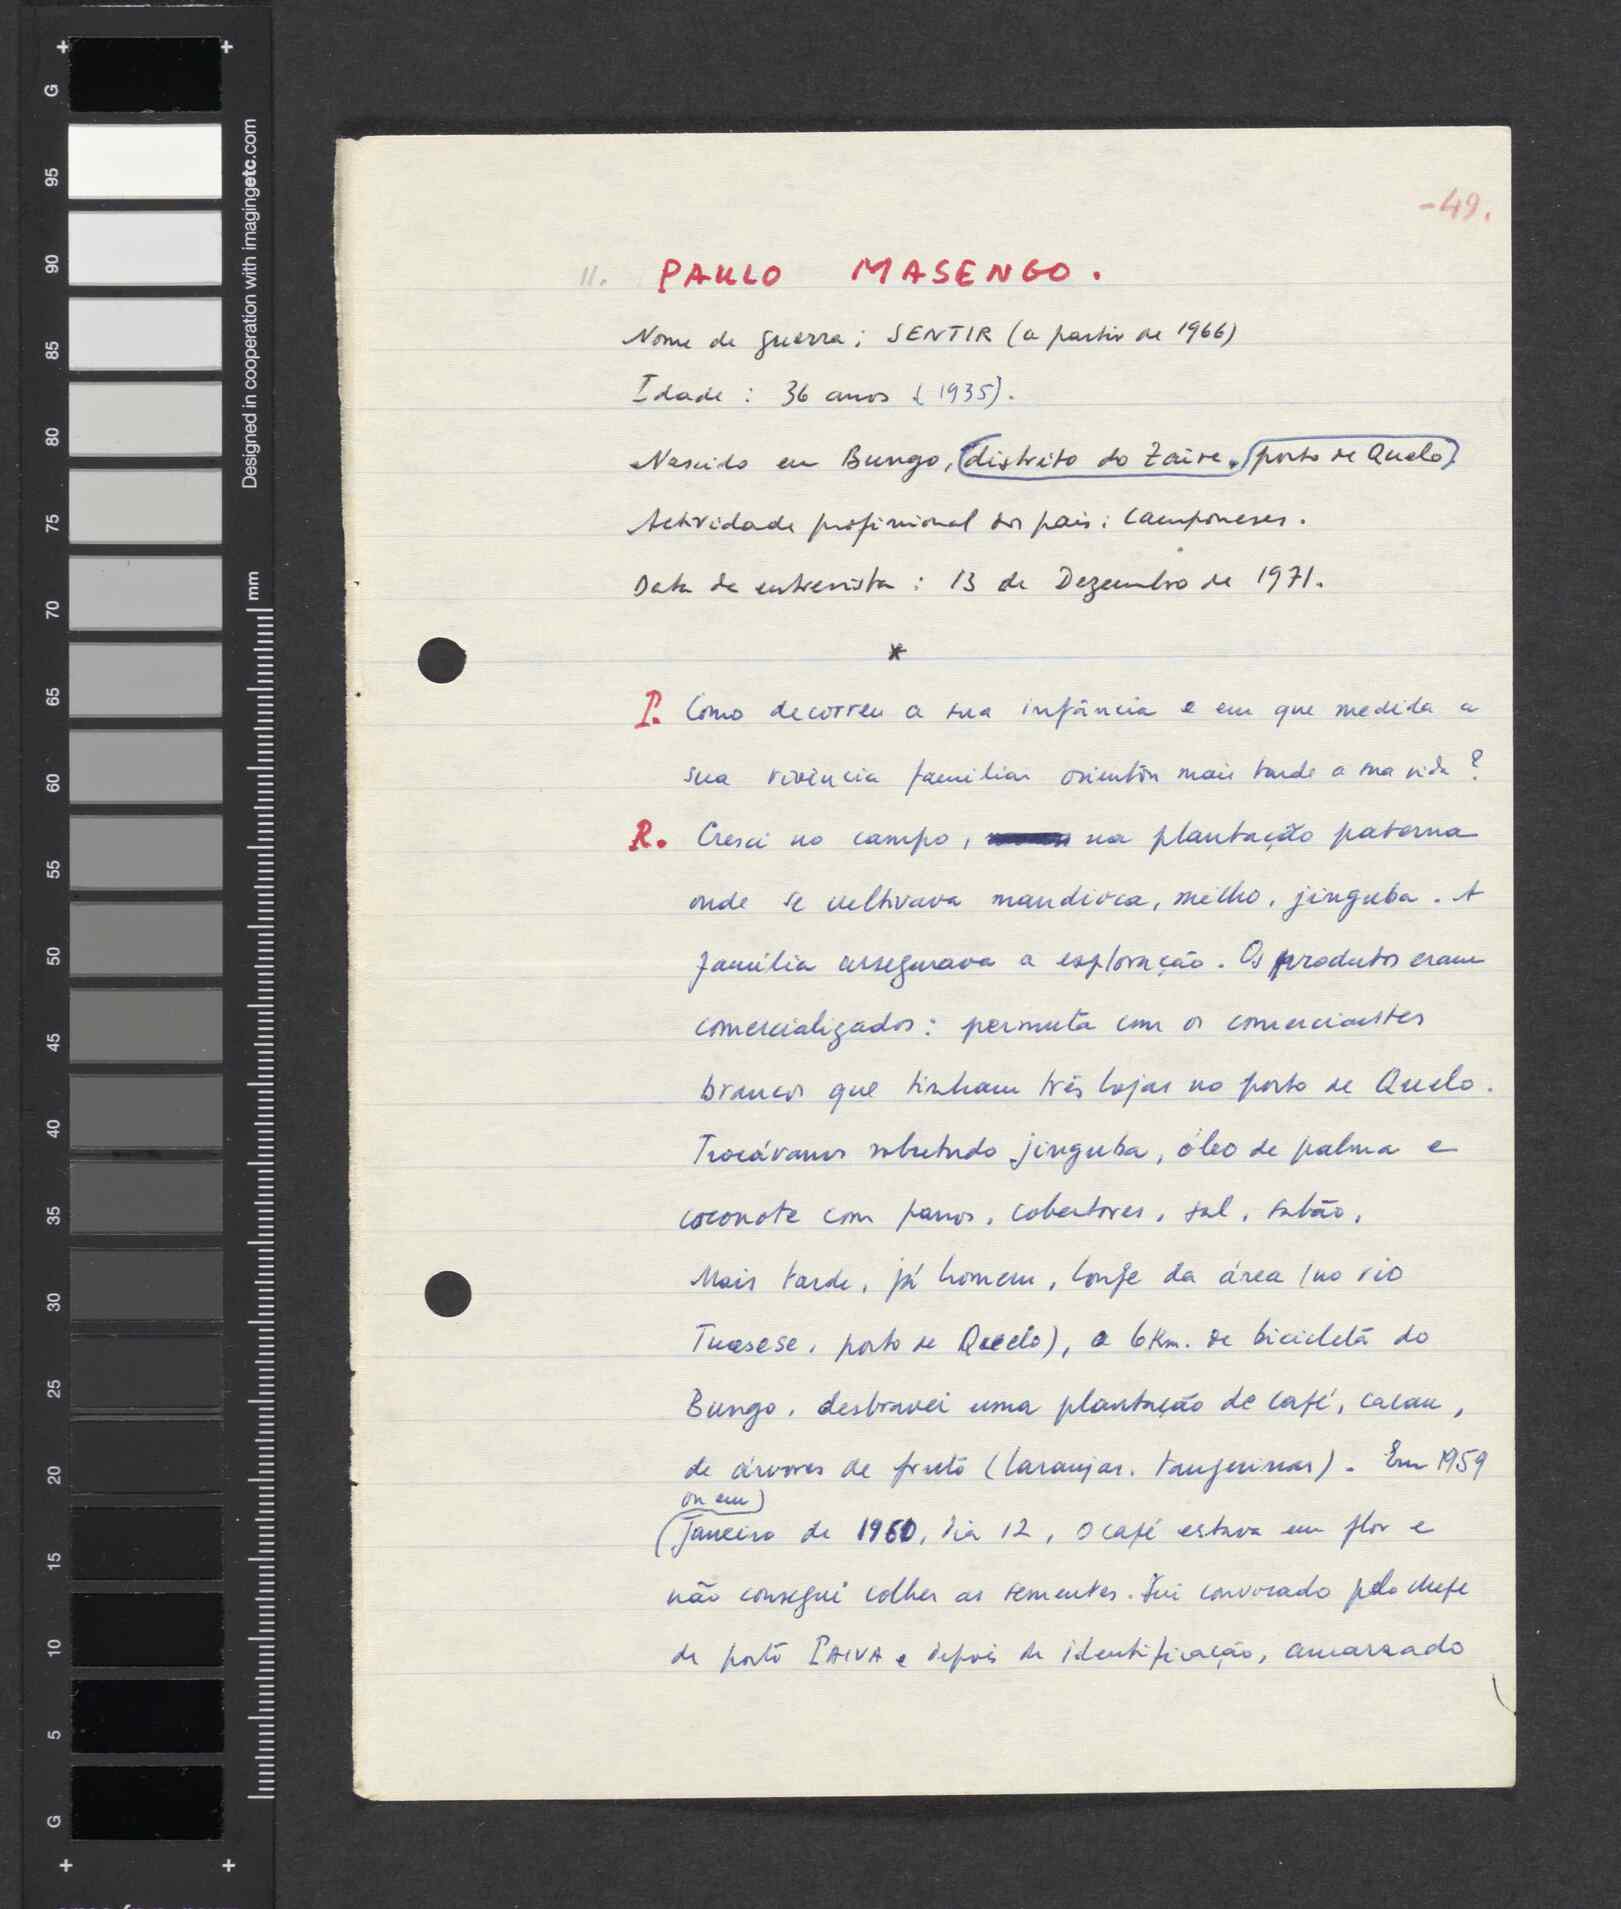 -49.
11. PAULO MASENGO.
Nome de guerra: SENTIR (a partir de 1966)
Idade: 36 anos (1935).
Nascido em Bungo, (distrito do Zaire. (posto de Quelo)
Actividade profissional dos pais: Camponeses.
Data da entrevista: 13 de Dezembro de 1971.
*
P. Como decorreu a sua infância e em que medida a
sua vivência familiar orientou mais tarde a sua vida?
R. Cresci no campo, na plantação paterna
onde se cultivava mandioca, milho, jinguba. A
família assegurava a exploração. Os produtos eram
comercializados: permuta com os comerciantes
brancos que tinham três lojas no posto de Quelo.
Trocávamos sobretudo jinguba, óleo de palma e
coconote com panos, cobertores, sal, sabão.
Mais tarde, já homem, longe da área (no rio
posto de Quelo), a 6 Km. de bicicleta do
Bungo, desbravei uma plantação de café, cacau,
de árvores de fruto (laranjas, tangerinas). Em 1959
ou em)
(Janeiro de 1960, dia 12, o café estava em flor e
não consegui colher as sementes. Fui convocado pelo chefe
de posto PAIVA e depois de identificação, amarrado
G
95
90
85
80
75
70
65
60
55
50
45
40
35
30
25
20
15
10
5
G
Designed in cooperation with imagingetc.com
mm